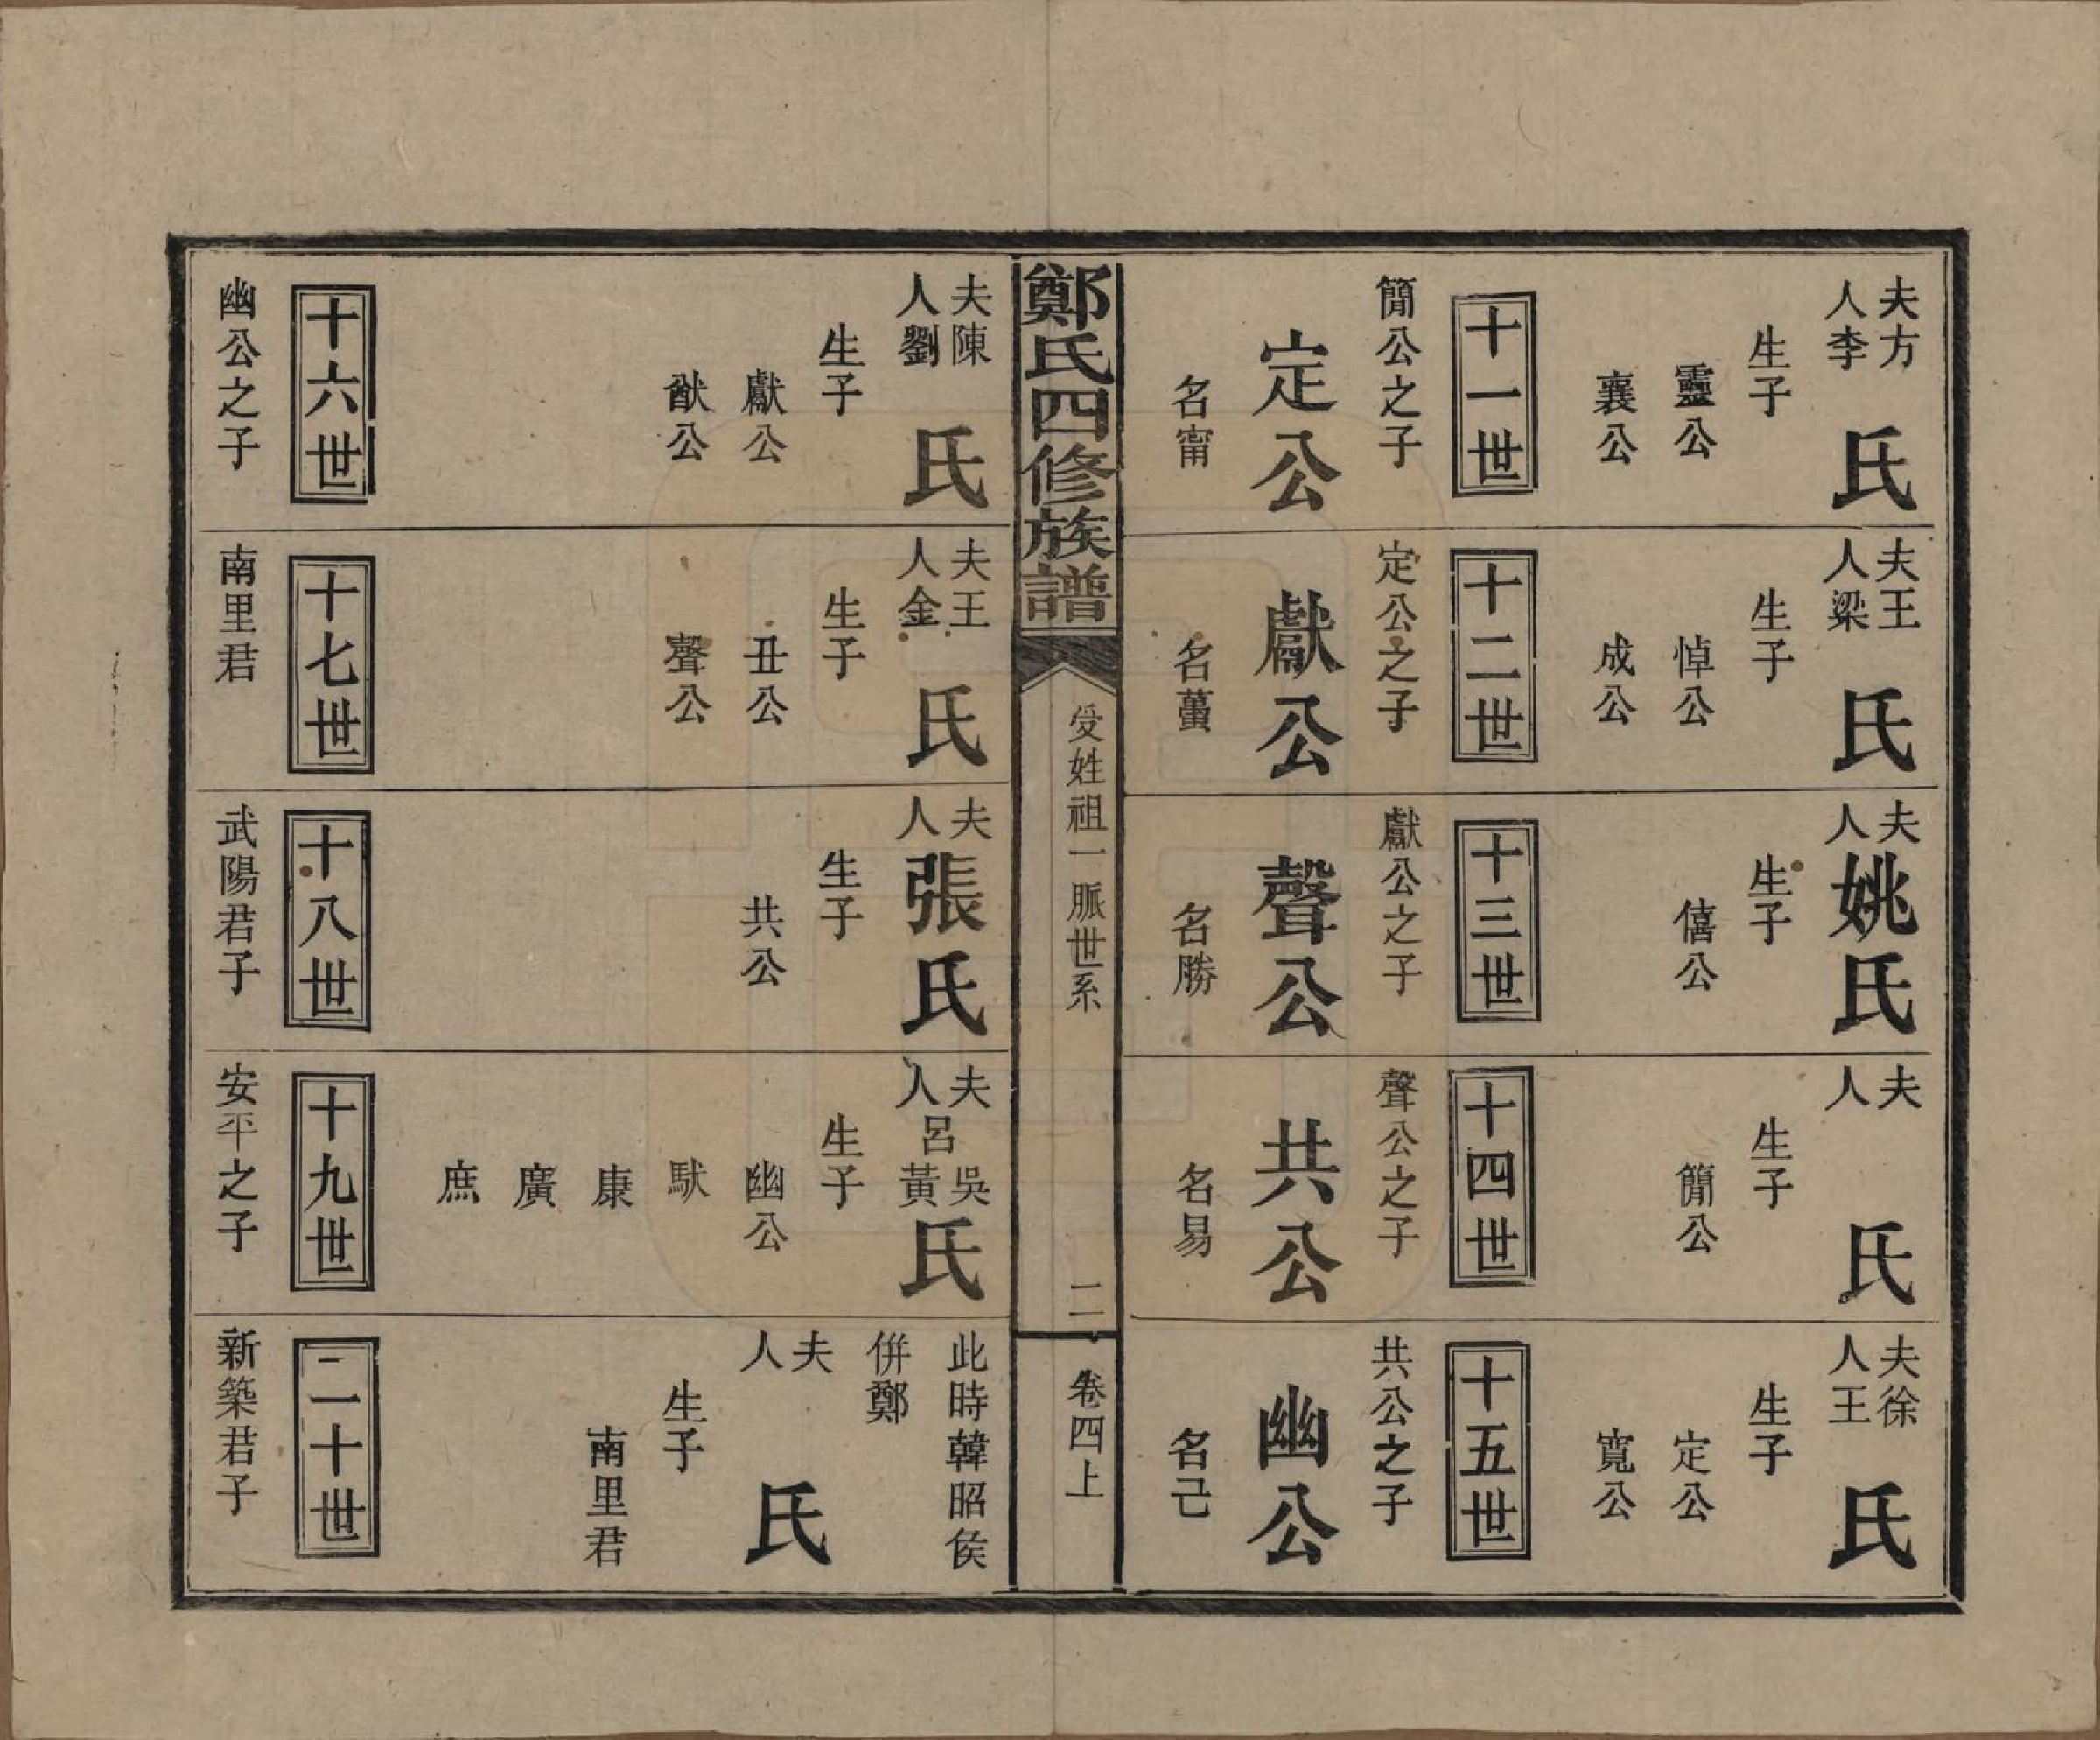 夫方
人李
氏
生子
靈公
襄公
十一世
簡公之子
定公
名甯
夫王
人梁
氏
生子
悼公
成公
十二世
定公之子
獻公
名蠆
夫
人
姚氏
生子
僖公
十三世
獻公之子
聲公
名勝
夫
人
氏
生子
簡公
十四世
聲公之子
共公
名易
夫徐
人王
氏
生子
定公
寬公
十五世
共公之子
幽公
名己
鄭氏四修族譜
受姓祖一脈世系
二
卷四上
夫陳
人劉
氏
生子
獻公
猷公
十六世
幽公之子
夫王
人金
氏
生子
丑公
聲公
十七世
南里君
夫
人
張氏
生子
共公
十八世
武陽君子
夫
人
呂
吳
黃
氏
生子
幽公
駄
康
廣
庶
十九世
安平之子
此時韓昭侯
併鄭
夫
人
氏
生子
南里君
二十世
新築君子